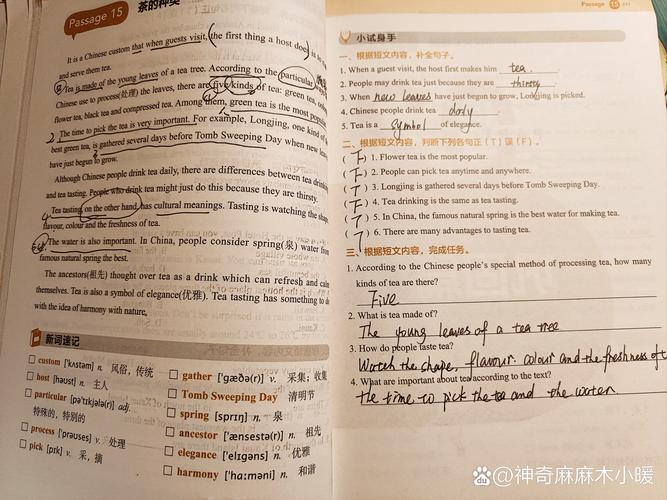 Passage 15
茶的种类
It is a Chinese custom that when guests visit, the first thing a host does is to
and serve them tea.
Tea is made of the young leaves of a tea tree. According to the particular
Chinese use to process(处理) the leaves, there are five kinds of tea: green tea,
flower tea, black tea and compressed tea. Among them, green tea is the most
2. The time to pick the tea is very important. For example, Longjing, one kind of
best green tea, is gathered several days before Tomb Sweeping Day when new
have just begun to grow.
Although Chinese people drink tea daily, there are differences between tea
and tea tasting. People who drink tea might just do this because they are thirsty.
Tea tasting, on the other hand, has cultural meanings. Tasting is watching the
flavour, colour and the freshness of tea.
The water is also important. In China, people consider spring(泉) water from
famous natural spring the best.
The ancestors(祖先) thought over tea as a drink which can refresh and
themselves. Tea is also a symbol of elegance(优雅). Tea tasting has something to
with the idea of harmony with nature.
新词速记
custom ['kʌstəm] n. 风俗，传统
host [həʊst] n. 主人
particular [pə'tɪkjələ(r)] adj.
特殊的，特别的
process ['prəʊses] v. 处理
pick [pɪk] v. 采，摘
gather ['gæðə(r)] v. 采集；收集
Tomb Sweeping Day 清明节
spring [sprɪŋ] n. 泉
ancestor ['ænsestə(r)] n. 祖先
elegance ['elɪgəns] n. 优雅
harmony ['hɑːməni] n. 和谐
Passage 15
小试身手
一、根据短文内容，补全句子。
1. When a guest visit, the host first makes him tea.
2. People may drink tea just because they are thirsty.
3. When new leaves have just begun to grow, Longjing is picked.
4. Chinese people drink tea daily.
5. Tea is a symbol of elegance.
二、根据短文内容，判断下列各句正（T）误（F）。
( ) 1. Flower tea is the most popular.
( ) 2. People can pick tea anytime and anywhere.
( ) 3. Longjing is gathered several days before Tomb Sweeping Day.
( ) 4. Tea drinking is the same as tea tasting.
( ) 5. In China, the famous natural spring is the best water for making tea.
( ) 6. There are many advantages to tasting tea.
三、根据短文内容，完成任务。
1. According to the Chinese people's special method of processing tea, how many
kinds of tea are there?
Five
2. What is tea made of?
The young leaves of a tea tree
3. How do people taste tea?
Watch the shape, flavour colour and the freshness of
4. What are important about tea according to the text?
the time to pick the tea and the water.
百度@神奇麻麻木小暖